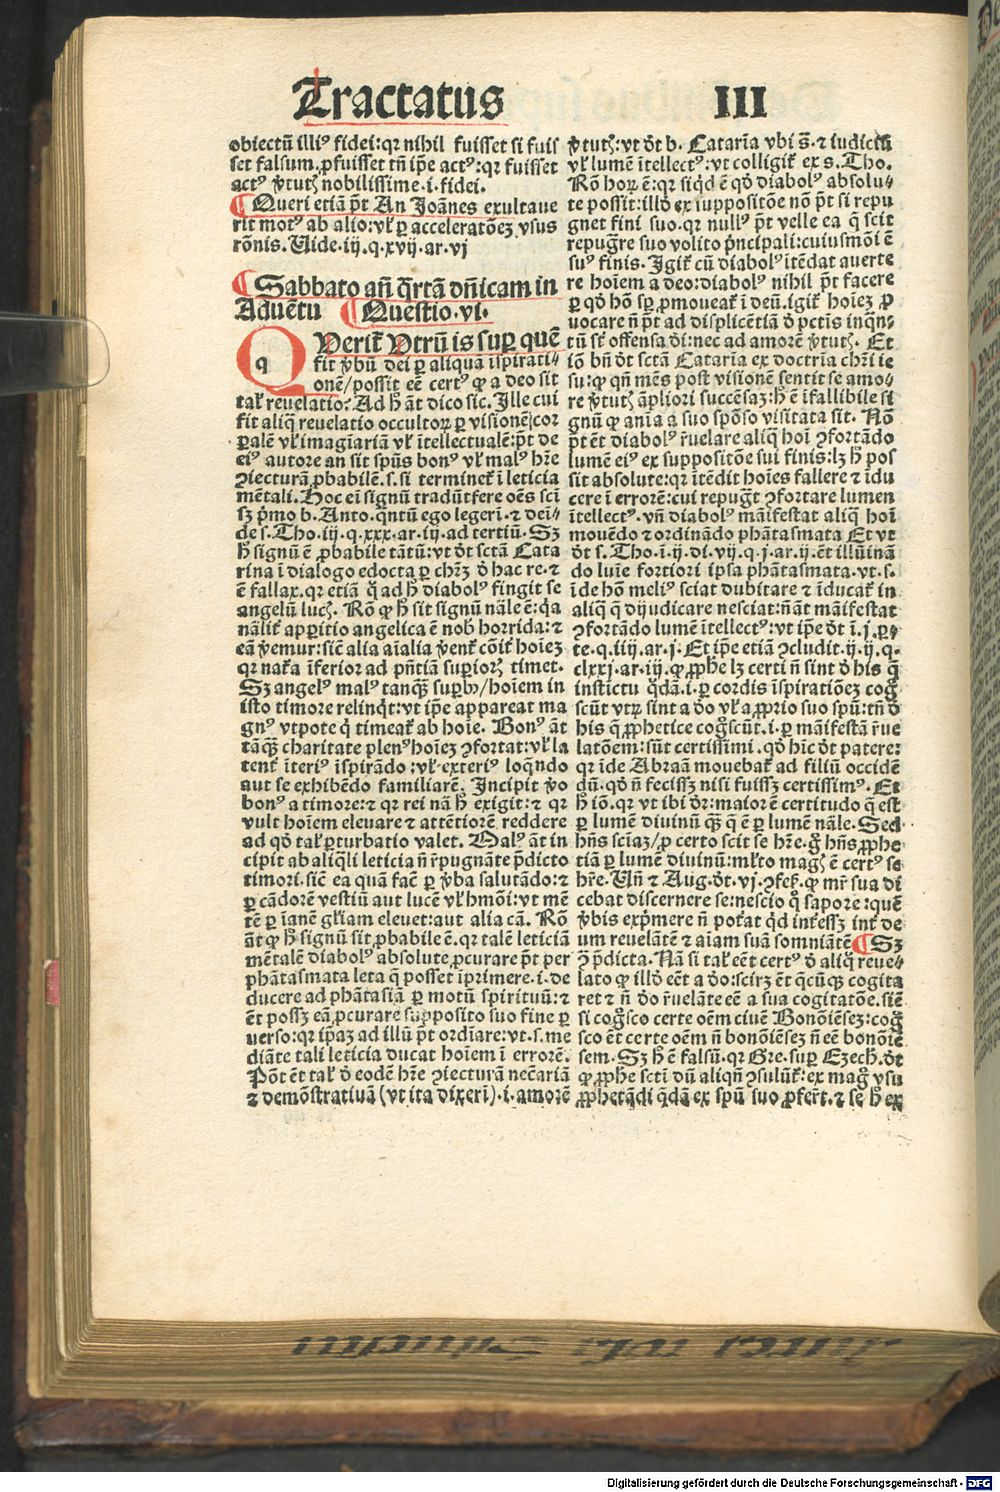 Tractatus III
obiectū illiꝰ fidei: qꝛ nihil fuisset si fuis
set falsum, ꝓfuisset tn̄ ip̄e actꝰ: qꝛ fuisset
actꝰ v̓tutꝭ nobilissime .i. fidei.
¶ Queri etiā pt̄ An Joānes exultaue
rit motꝰ ab alio: vl̓ ꝑ acceleratōeꝫ vsus
rōnis. Uide .iij. q. xvij. ar. vj
¶ Sabbato añ q̄rtā dñicam in
Aduētu ¶ Questio .vi.
Q Verit̉ Vtrū is suꝑ quē
fit v̓bū dei ꝑ aliquā īspirati⸗
onē/ possit eē certꝰ ꝙ a deo sit
tal̓ reuelatio? Ad h̄ āt dico sic. Ille cui
fit aliq̄ reuelatio occultoꝝ ꝑ visionē/ cor
ꝑalē vl̓ imagīariā vl̓ ītellectualē: pt̄ de
eiꝰ autore an sit spūs bonꝰ vl̓ malꝰ hr̄e
ꝯiecturā ꝓbabilē .s. si terminet̉ ī leticia
mētali. Hoc eī signū tradūt fere oēs scī
sꝫ p̄mo b. Anto. q̄ntū ego legerī. ⁊ deī⸗
de s. Tho. iij. q. xxx. ar. iij. ad tertiū. Sꝫ
h̄ signū ē ꝓbabile tātū: vt dt̄ sctā Cata
rina ī dialogo edocta ꝑ chr̄ꝫ d̓ hac re. ⁊
ē fallax. qꝛ etiā q̄ ad h̄ diabolꝰ fingit se
angelū lucꝭ. Rō ꝙ h̄ sit signū nāle ē: q̇a
nālit̉ apparitio angelica ē nob̓ horrida: ⁊
eā v̓emur: sic̄ alia aīalia v̓ent̉ cōit̉ hoīeꝫ
qꝛ nat̉a īferior ad p̄ntiā superiorꝭ timet.
Sꝫ angelꝰ malꝰ tanqꝫ superbꝰ/ hoīem in
isto timore relinq̇t: vt ip̄e appareat ma
gnꝰ vtpote q̇ timeat̉ ab hoīe. Bonꝰ āt
tāqꝫ charitate plenꝰ hoīeꝫ ꝯfortat: vl̓ la
tent̉ īteriꝰ īspirādo: vl̓ exteriꝰ loq̄ndo
aut se exhibēdo familiarē. Incipit v̓o
bonꝰ a timore: ⁊ qꝛ rei nā h̄ exigit: ⁊ qꝛ
vult hoīem eleuare ⁊ attētiorē reddere
ad qd̓ tal̓ ꝑturbatio valet. Malꝰ āt in
cipit ab aliq̄li leticia n̄ r̓pugnāte p̄dicto
timori. sic̄ ea quā fac̄ ꝑ v̓ba salutādo: ⁊
ꝑ cādorē vestiū aut lucē vl̓ hmōi: vt mē
tē ꝑ īanē gl̓iam eleuet: aut alia cā. Rō
āt̄ ꝙ h̄ signū sit ꝓbabile ē. qꝛ talē leticiā
mētalē diabolꝰ absolute ꝓcurare pt̄ per
phātasmata leta q̄ posset īprimere .i. de
ducere ad phātasiā ꝑ motū spirituū: ⁊
ēt possꝫ eā ꝓcurare supposito suo fine ꝑ
uerso: qꝛ ip̄aꝫ ad illū pt̄ ordīare: vt .s. me
diāte tali leticia ducat hoīem ī errorē.
Pōt ēt tal̓ d̓ eodē hr̄e ꝯiecturā necāriā
⁊ demōstratiuā (vt ita dixerī) .i. amorē
v̓tutꝭ: vt dt̄ b. Catarīa vbi s̄. ⁊ iudiciū
vl̓ lumē ītellectꝰ: vt colligit̉ ex s. Tho.
Rō horꝝ ē: qꝛ siq̇d ē qd̓ diabolꝰ absolu⸗
te possit: illd̓ ex suppositōe nō pt̄ si repu
gnet fini suo. qꝛ nullꝰ pt̄ velle ea q̄ scit
repugr̄e suo volito p̄ncipali: cuiusmōi ē
suꝰ finis. Igit̉ cū diabolꝰ ītēdat auerte
re hoīem a deo: diabolꝰ nihil pt̄ facere
ꝑ qd̓ hō sꝑ ꝓmoueat̉ ī deū. igit̉ hoīeꝫ ꝓ
uocare n̄ pt̄ ad displicētiā d̓ pctīs inq̄n⸗
tū sūt offensa di: nec ad amorē v̓tutꝭ. Et
iō bn̄ dt̄ sctā Catarīa ex doctria chrī ie
su: ꝙ qn̄ mēs post visionē sentit se amo⸗
re v̓tutꝭ āpliori succēsaꝫ: h̄ ē īfallibile si
gnū ꝙ anīa a suo spōso visitata sit. Nō
pt̄ ēt diabolꝰ r̓uelare aliq̄ hoī ꝯfortādo
lumē eiꝰ ex suppositōe sui finis: lꝫ h̄ pos
sit absolute: qꝛ ītēdit hoīes fallere ⁊ īdu
cere ī errorē: cui repugt̄ ꝯfortare lumen
ītellectꝰ. vn̄ diabolꝰ māifestat aliq̄ hoī
mouēdo ⁊ ordināndo phātasmata Et vt
dt̄ s. Tho. ī. ij. di. vij. q. j. ar. ij. ēt illūinā
do luīe fortiori ipsa phātasmata. vt .s.
īde hō meliꝰ sciat dubitare ⁊ īducat̉ in
aliq̄ q̄ dijudicare nesciat: n̄ āt māifestat
ꝯfortādo lumē ītellectꝰ: vt ip̄e dt̄ ī. j. ꝑ⸗
te. q. iiij. ar. j. Et ip̄e etiā ꝯcludit .ij. ij. q.
clxxj. ar. iij. ꝙ ꝓphe lꝫ certi n̄ sint d̓ his q̄
instīctu q̇dā .i. ꝑ cordis īspiratiōeꝫ cog̓
scūt vtꝝ sint a do vl̓ a ꝓprio suo spū: tn̄ d̓
his q̄ ꝓphetice cog̓scūt .i. ꝑ māifestā r̓ue
latōem: sūt certissimi. qd̓ hīc dt̄ patere:
qꝛ īde Abraā mouebat̉ ad filiū occidē
dū. qd̓ n̄ fecissꝫ nisi fuissꝫ certissimꝰ. Et
h̄ iō. qꝛ vt ibi dr̄: maior ē certitudo q̄ est
ꝑ lumē diuinū qꝫ q̄ ē ꝑ lumē nāle. Sed
hn̄s sciaꝫ/ ꝓ certo scit se hr̄e. g̊ hn̄s ꝓphe
tiā ꝑ lumē diuinū: ml̓to magꝭ ē certꝰ se
hr̄e. Un̄ ⁊ Aug. dt̄. vj. ꝯfeſ. ꝙ mr̄ sua di
cebat discernere se: nescio q̊ sapore: quē
v̓bis exp̄mere n̄ poterat q̇d īteressꝫ int̉ de
um reuelātē ⁊ aīam suā somniātē ¶ Sꝫ
ꝯ̄ p̄dicta. Nā si tal̓ eēt certꝰ d̓ aliq̄ reue⸗
lato ꝙ illd̓ eēt a do: sciret̉ ēt q̄cūqꝫ cogita
ret ⁊ n̄ do r̓uelāte eē a sua cogitatōe. sic̄
si cog̓sco certe oēm ciuē Bonōiēseꝫ: cog̓
sco ēt certe oēm n̄ bonōiēseꝫ n̄ eē bonōiē
sem. Sꝫ h̄ ē falsū. qꝛ Gre. suꝑ Ezech. dt̄
ꝙ ꝓphe sctī dū aliqn̄ ꝯsulūt̉: ex mag̊ vsu
ꝓphetādi q̇dā ex spū suo ꝓferūt. ⁊ se h̄ ex
Digitalisierung gefördert durch die Deutsche Forschungsgemeinschaft - DFG